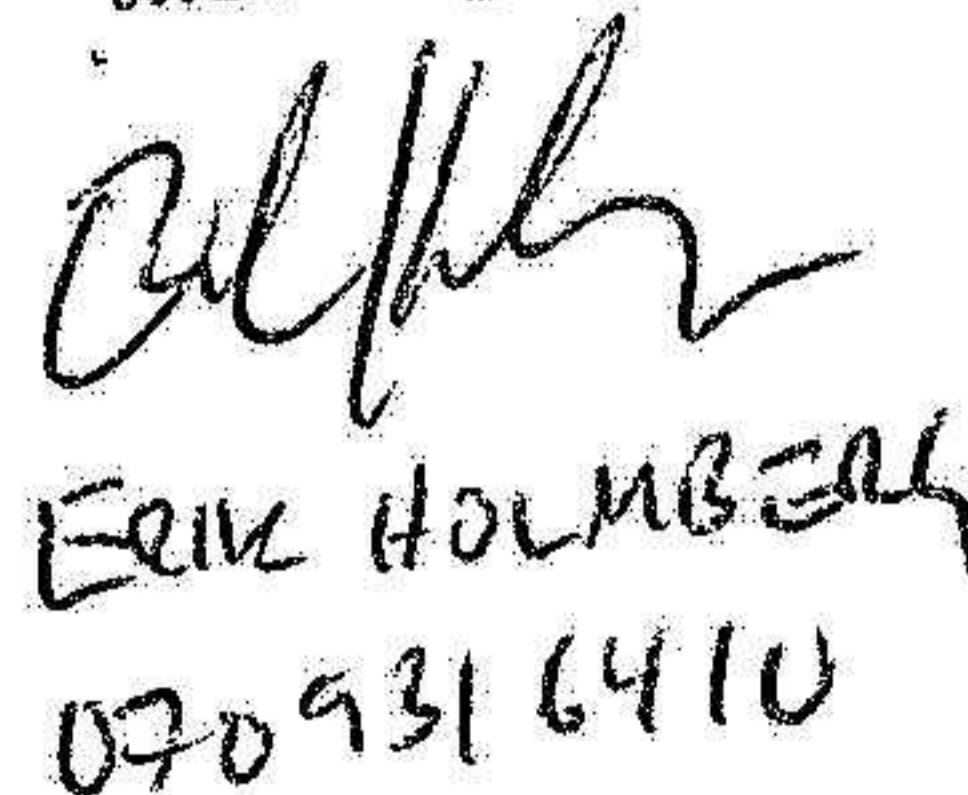 ERIK HOLMBERG
070 931 6410